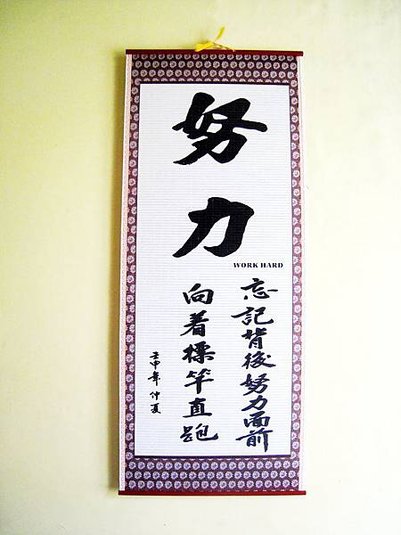 努力
WORK HARD
忘記背後努力面前
向着標竿直跑
壬申年仲夏